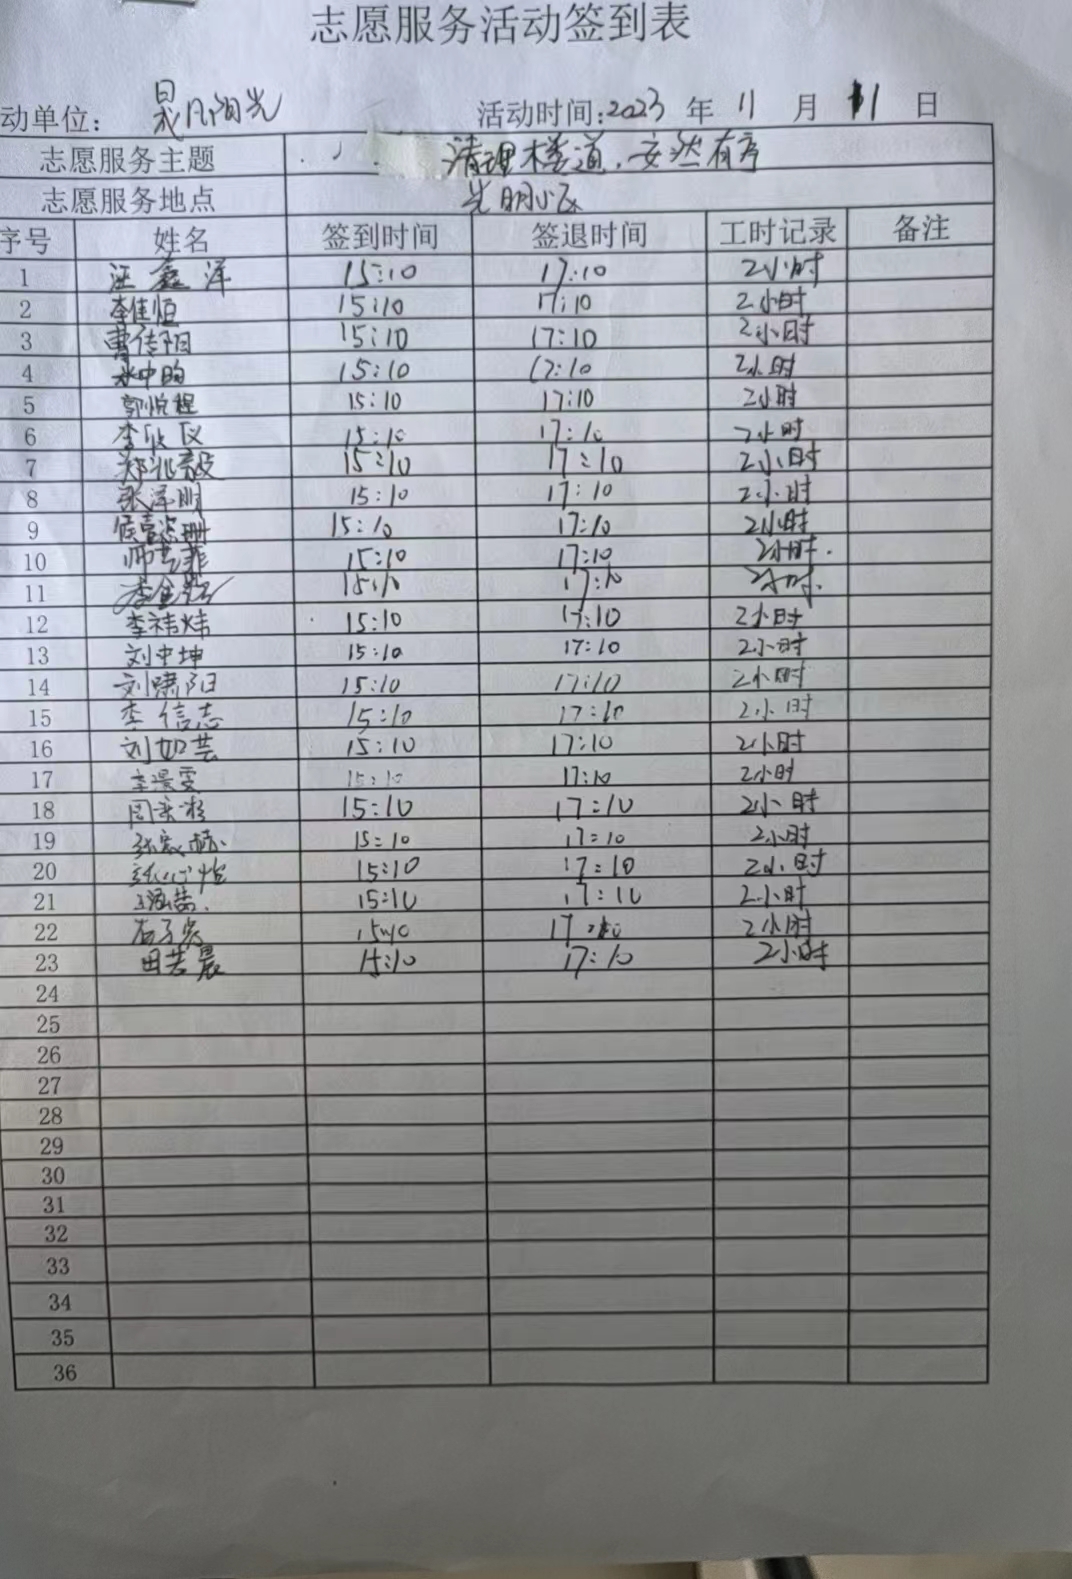 志愿服务活动签到表
动单位: 阳光 活动时间:2023 年 11 月 11 日
志愿服务主题 清理楼道,安然有序
志愿服务地点 光明小区
序号 姓名 签到时间 签退时间 工时记录 备注
1 汪鑫洋 15:10 17:10 2小时
2 李佳恒 15:10 17:10 2小时
3 曹佳阳 15:10 17:10 2小时
4 15:10 17:10 2小时
5 郭悦程 15:10 17:10 2小时
6 李 15:10 17:10 2小时
7 郑兆毅 15:10 17:10 2小时
8 张泽明 15:10 17:10 2小时
9 15:10 17:10 2小时
10 15:10 17:10 2小时.
11 李 15:10 17:10
12 李祎炜 15:10 17:10 2小时
13 刘中坤 15:10 17:10 2小时
14 刘啸阳 15:10 17:10 2小时
15 李信志 15:10 17:10 2小时
16 刘如芸 15:10 17:10 2小时
17 15:10 17:10 2小时
18 15:10 17:10 2小时
19 15:10 17:10 2小时
20 张心怡 15:10 17:10 2小时
21 15:10 17:10 2小时
22 15:10 17:10 2小时
23 田芸晨 15:10 17:10 2小时
24
25
26
27
28
29
30
31
32
33
34
35
36